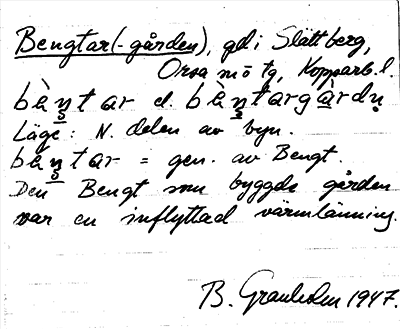 Bengtar(-gården), gd i Slättberg,
Orsa sn o tg, Kopparb. l.
bèṇtar el. bèṇtargàrdṇ
Läge: N. delen av byn.
bèṇtar = gen. av Bengt.
Den Bengt som byggde gården
var en inflyttad värmlänning.
B. Granholm 1947.